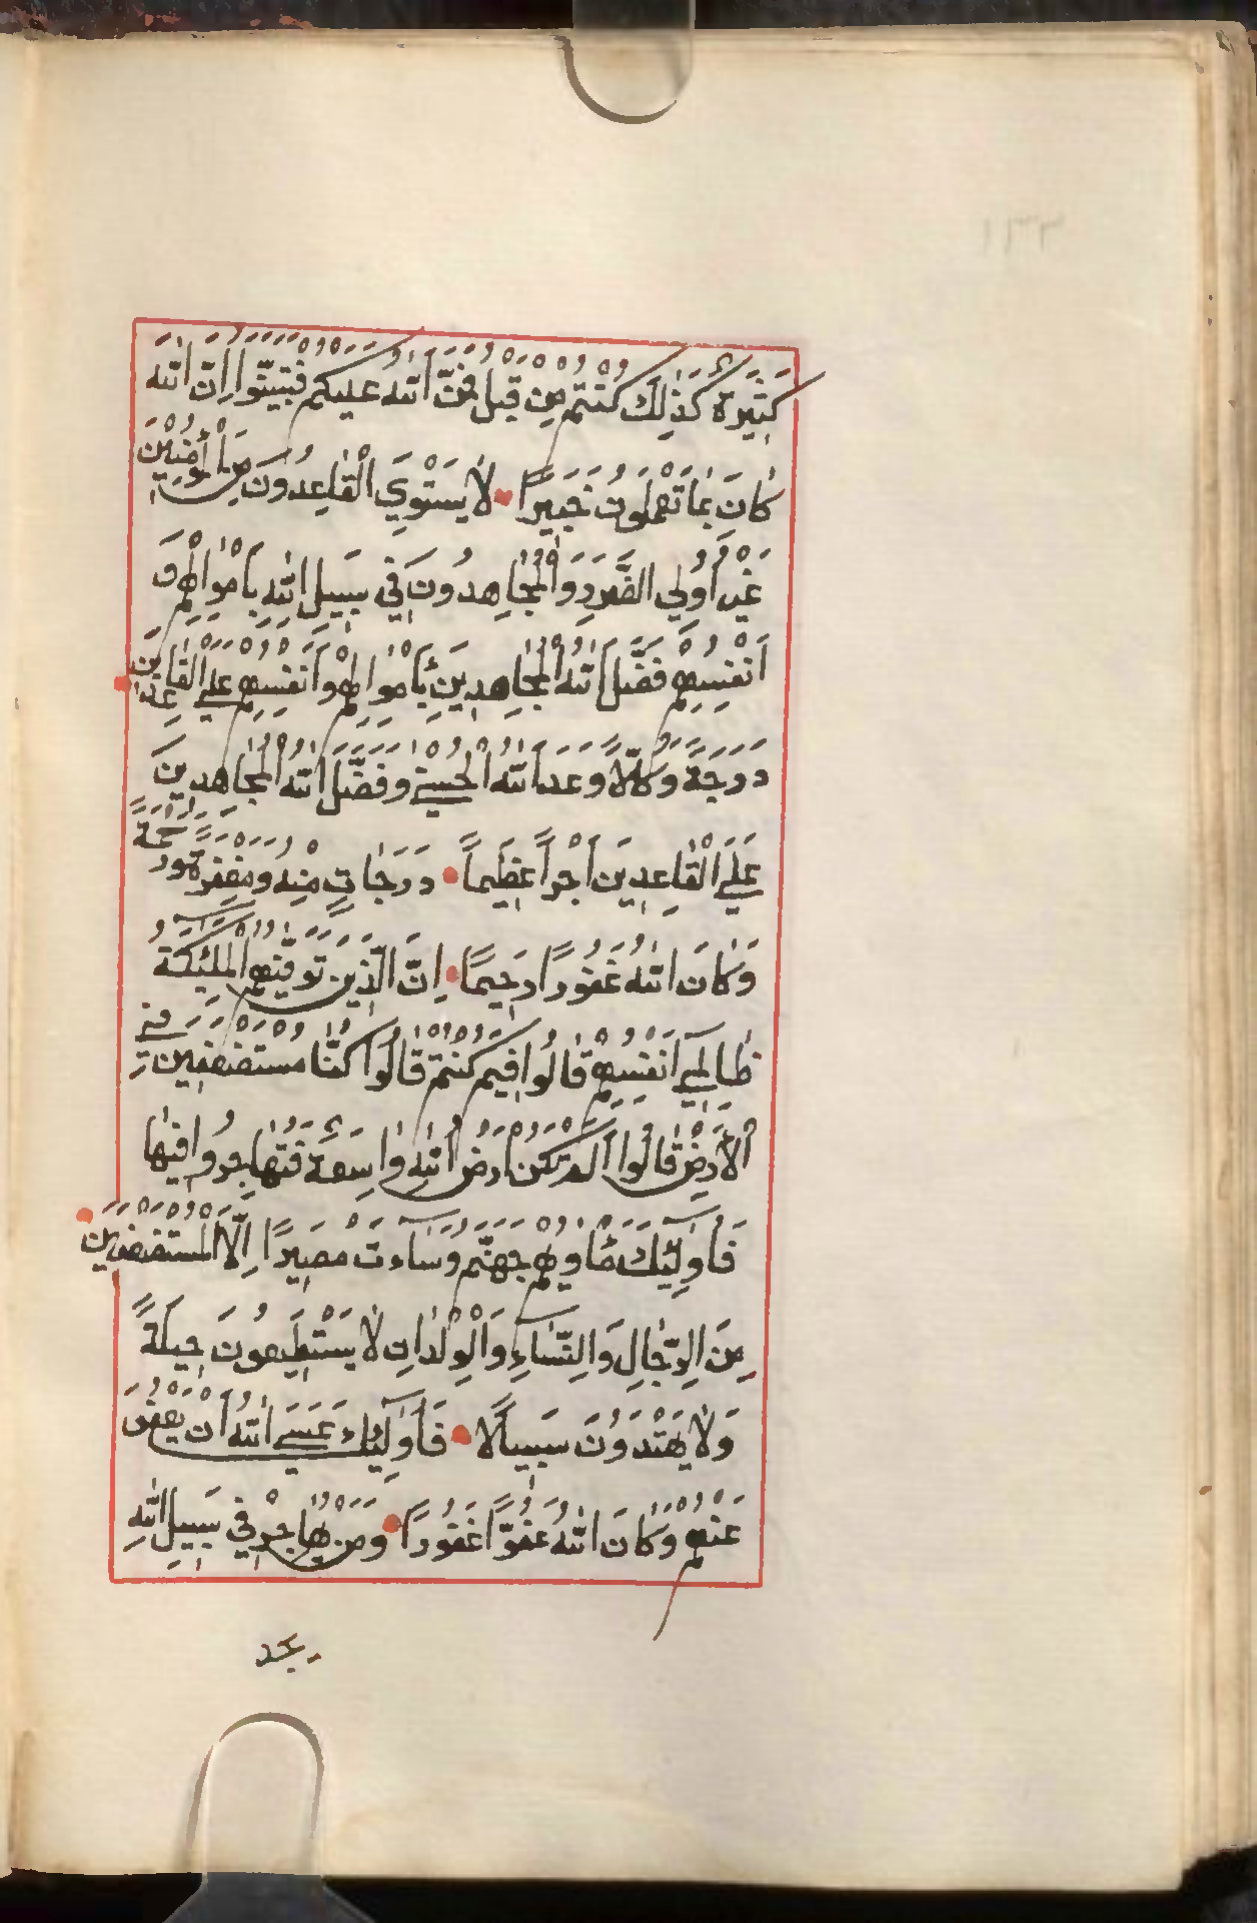 كَثِيرَةٌ كَذٰلِكَ كُنْتُمْ مِنْ قَبْلُ فَمَنَّ اللّٰهُ عَلَيْكُمْ فَتَبَيَّنُوا اِنَّ اللّٰهَ
كَانَ بِمَا تَعْمَلُونَ خَبِيرًا لَا يَسْتَوِي الْقَاعِدُونَ مِنَ الْمُؤْمِنِينَ
غَيْرُ اُولِي الضَّرَرِ وَالْمُجَاهِدُونَ فِي سَبِيلِ اللّٰهِ بِاَمْوَالِهِمْ وَ
اَنْفُسِهِمْ فَضَّلَ اللّٰهُ الْمُجَاهِدِينَ بِاَمْوَالِهِمْ وَاَنْفُسِهِمْ عَلَى الْقَاعِدِينَ
دَرَجَةً وَكُلًّا وَعَدَ اللّٰهُ الْحُسْنٰى وَفَضَّلَ اللّٰهُ الْمُجَاهِدِينَ
عَلَى الْقَاعِدِينَ اَجْرًا عَظِيمًا دَرَجَاتٍ مِنْهُ وَمَغْفِرَةً وَرَحْمَةً
وَكَانَ اللّٰهُ غَفُورًا رَحِيمًا اِنَّ الَّذِينَ تَوَفّٰيهُمُ الْمَلٰئِكَةُ
ظَالِمِي اَنْفُسِهِمْ قَالُوا فِيمَ كُنْتُمْ قَالُوا كُنَّا مُسْتَضْعَفِينَ فِي
الْاَرْضِ قَالُوا اَلَمْ تَكُنْ اَرْضُ اللّٰهِ وَاسِعَةً فَتُهَاجِرُوا فِيهَا
فَاُولٰئِكَ مَأْوٰيهُمْ جَهَنَّمُ وَسَاءَتْ مَصِيرًا اِلَّا الْمُسْتَضْعَفِينَ
مِنَ الرِّجَالِ وَالنِّسَاءِ وَالْوِلْدَانِ لَا يَسْتَطِيعُونَ حِيلَةً
وَلَا يَهْتَدُونَ سَبِيلًا فَاُولٰئِكَ عَسَى اللّٰهُ اَنْ يَعْفُوَ
عَنْهُمْ وَكَانَ اللّٰهُ عَفُوًّا غَفُورًا وَمَنْ يُهَاجِرْ فِي سَبِيلِ اللّٰهِ
يجد